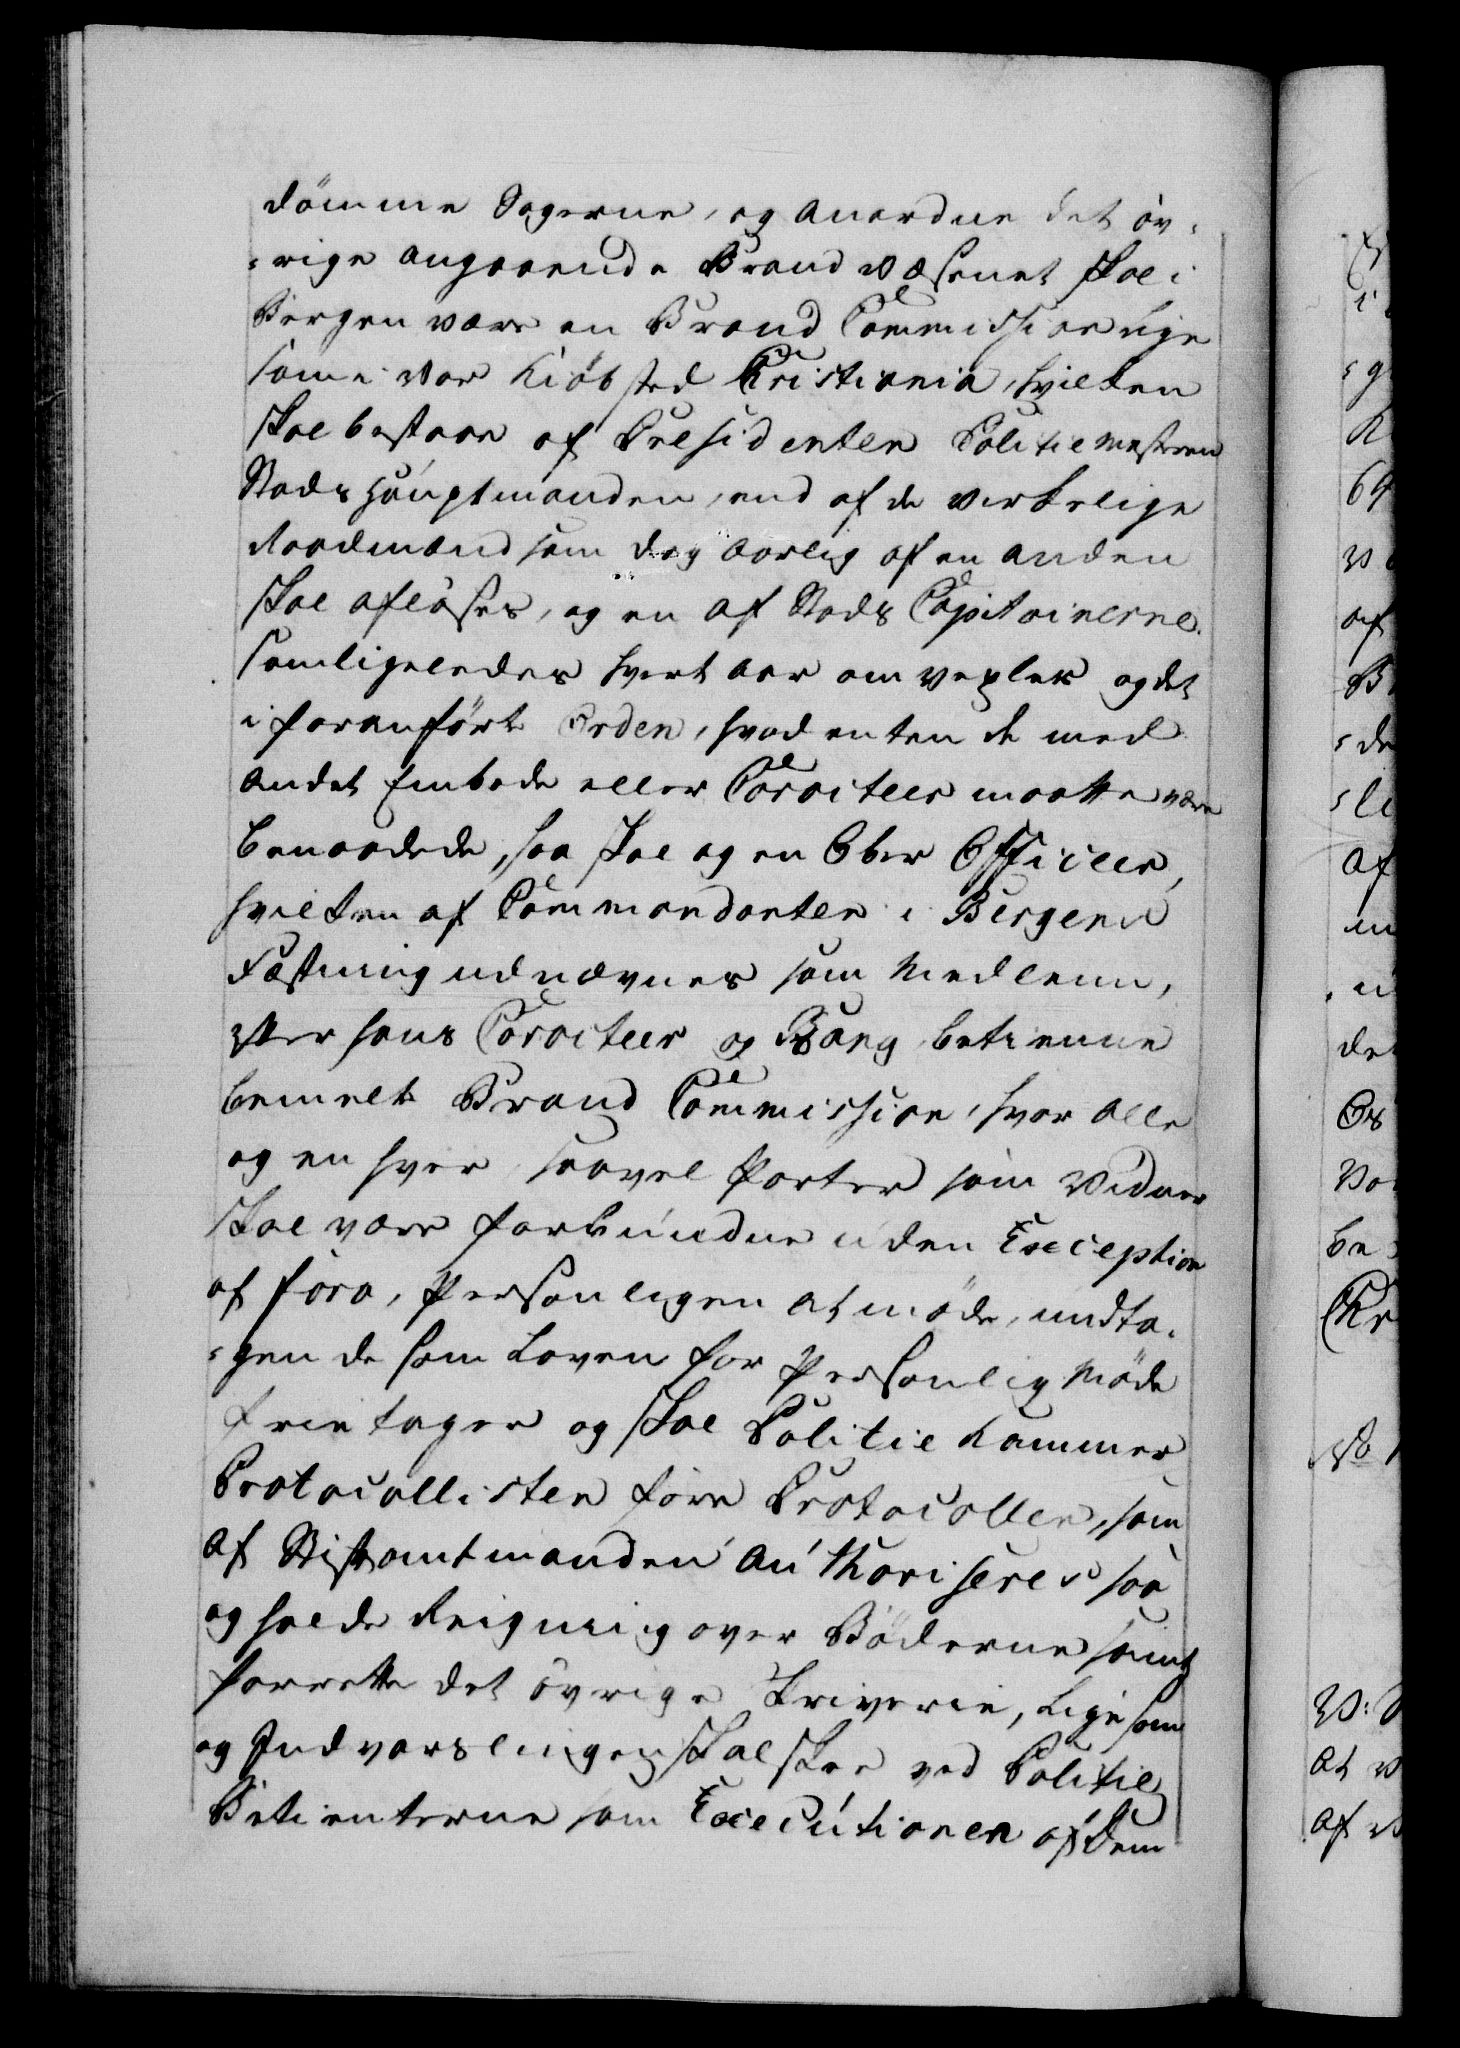 dömme Sagerne, og Anordne det öv¬
rige angaaende Brand Væsenet skal i
Bergen være en Brand Commission lige
som i vor Kiöbsted Cristiania, hvilken
skal bestaae af Presidenten Politiemesteren
Stads Hauptmanden, end af de virkelige
Raadmænd som dog aarlig af en anden
skal aflöses, og en af Stads Capitainerne
som ligeledes hvert Aar omvexles og det
i foranförte Orden, hvad enten de med
andet Embede eller Caracteer maatte være
benaadede, saa skal og en Ober Officeer,
hvilken af Commandanten i Bergens
Fæstning udnævnes som Medlem,
efter hans Caracteer og Rang betienne
bemelte Brand Commission, hvor alle
og en hver saavel Parter som Vidner
skal være forbundne uden Exception
af fora, Personligen at möde, undta¬
gen de som Loven for Personlig Möde
frie tager og skal Politie Kammer
Protocollisten före Protocollen, som
af Stiftamtmanden Authoriseres saa
og holde Reigning over Böderne samt
forrette det övrige Skriverie, Lige som
og Indvarslingen skal skee ved Politie
Betienterne som Executionen af dem